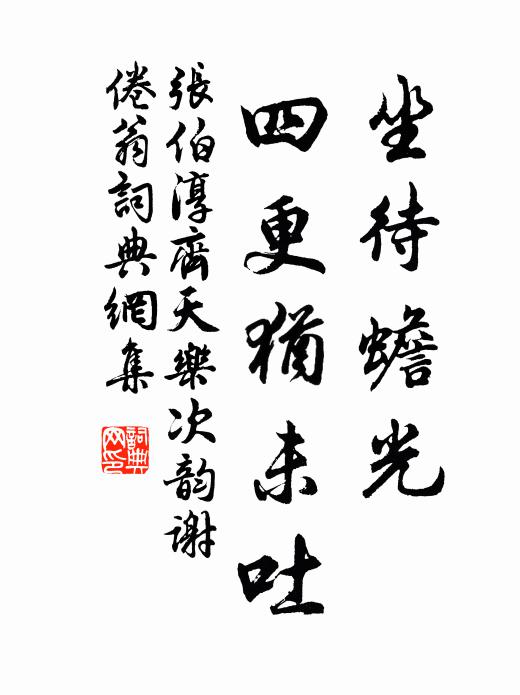 坐待蟾光
四更猶未吐
張伯淳齊天樂次韵謝
倦翁詞典網集
詞典
网印